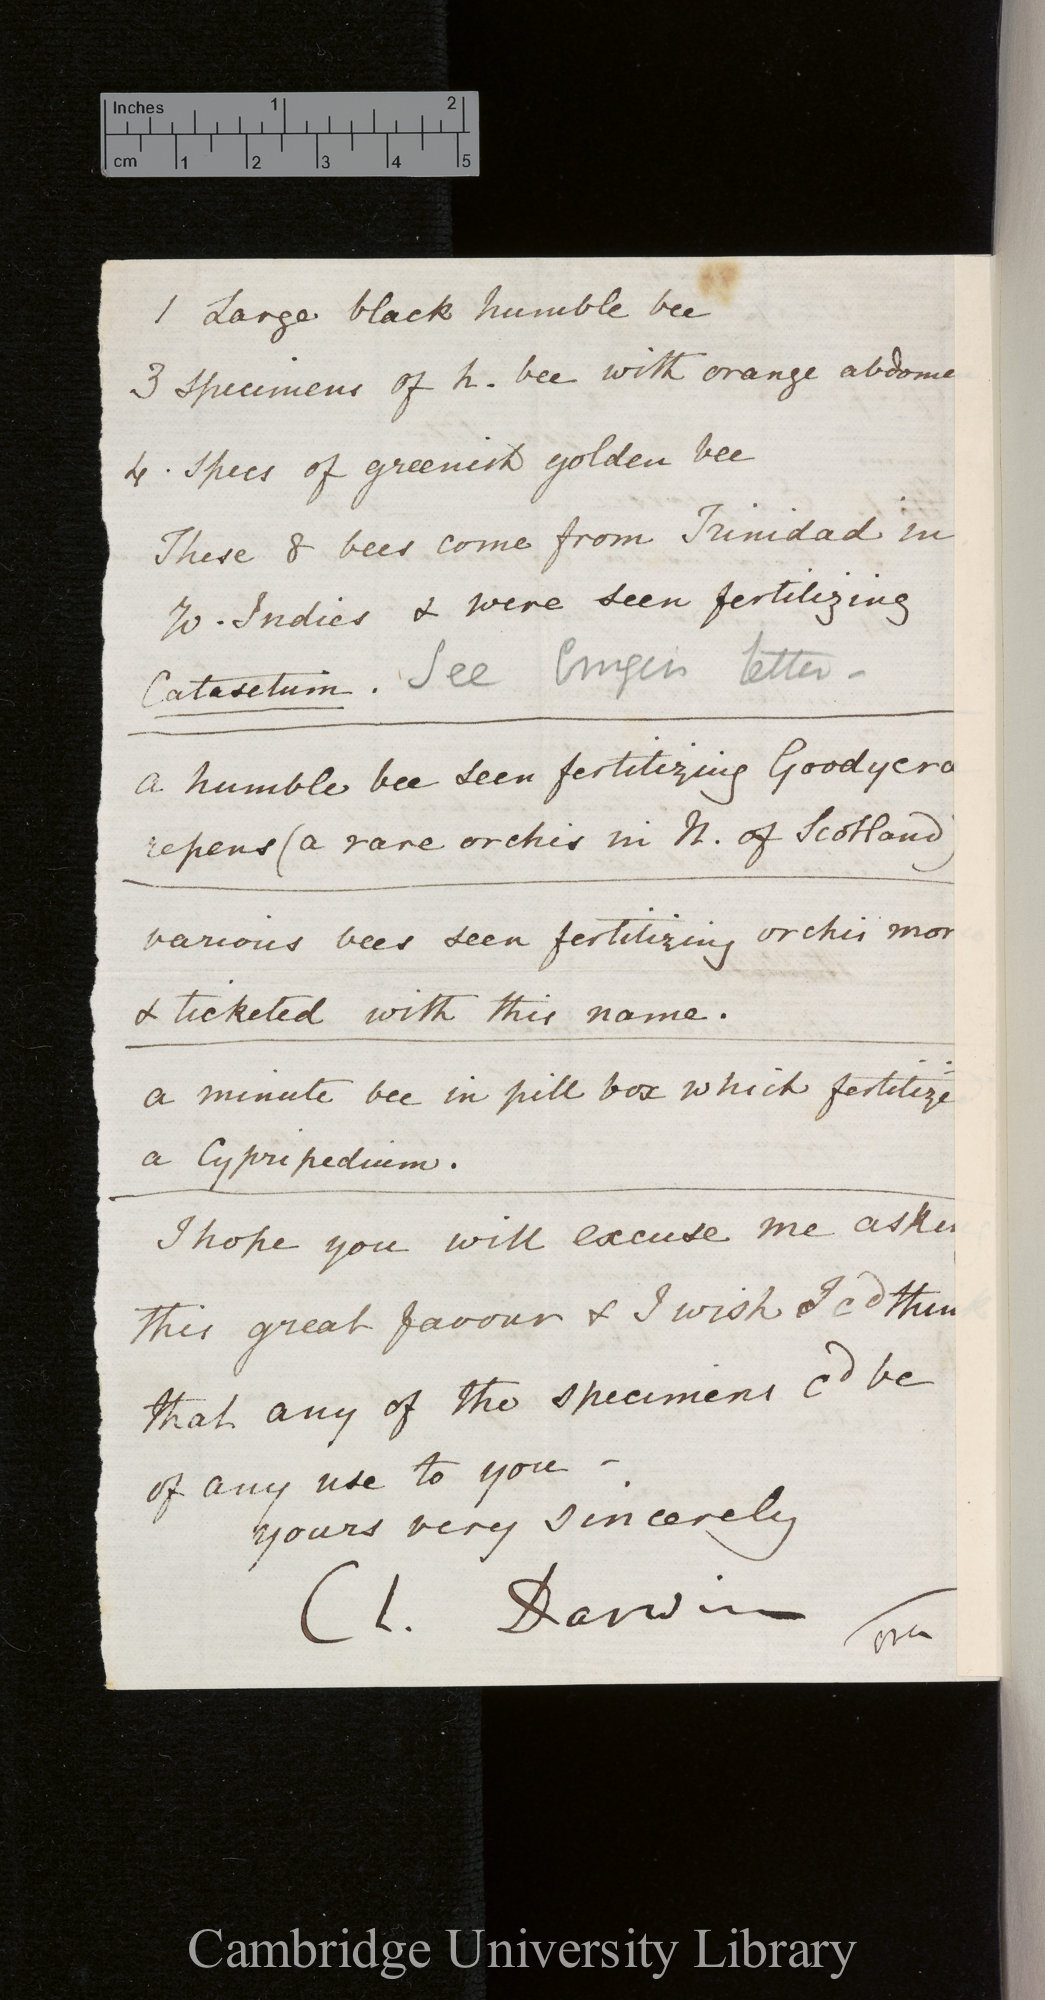 Inches 1 2
cm 1 2 3 4 5
1 Large black humble bee
3 specimens of h. bee with orange abdome
4. specs of greenish golden bee
These 8 bees come from Trinidad in
W. Indies & were seen fertilizing
Catasetum. See Crugers letter -
a humble bee seen fertilizing Goodyera
repens (a rare orchis in N. of Scotland)
various bees seen fertilizing orchis mor
& ticketed with this name.
a minute bee in pill box which fertilize
a Cypripedium.
I hope you will excuse me asking
this great favour & I wish I cd think
that any of the specimens cd be
of any use to you -
yours very sincerely
Ch. Darwin
over
Cambridge University Library